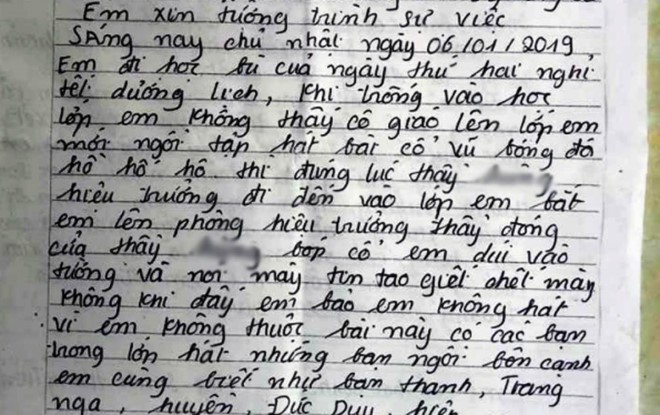 Em xin tường trình sự việc
SÁng nay chủ nhật ngày 06/01/2019,
Em đi học bù của ngày thứ hai nghỉ
tết dương lịch, khi trống vào học
lớp em không thấy cô giáo lên lớp em
mới ngồi tập hát bài cổ vũ bóng đá
hồ hồ hô thì đúng lúc thầy
hiệu trưởng đi đến vào lớp em bắt
em lên phòng hiệu trưởng thầy đóng
cửa thầy bóp cổ em dúi vào
tường và nói mày tin tao giết chết mày
không khi đấy em bảo em không hát
vì em không thuộc bài này có các bạn
trong lớp hát những bạn ngồi bên cạnh
em cũng biết như bạn thanh, Trang
nga, huyền, Đức Duy, hiền